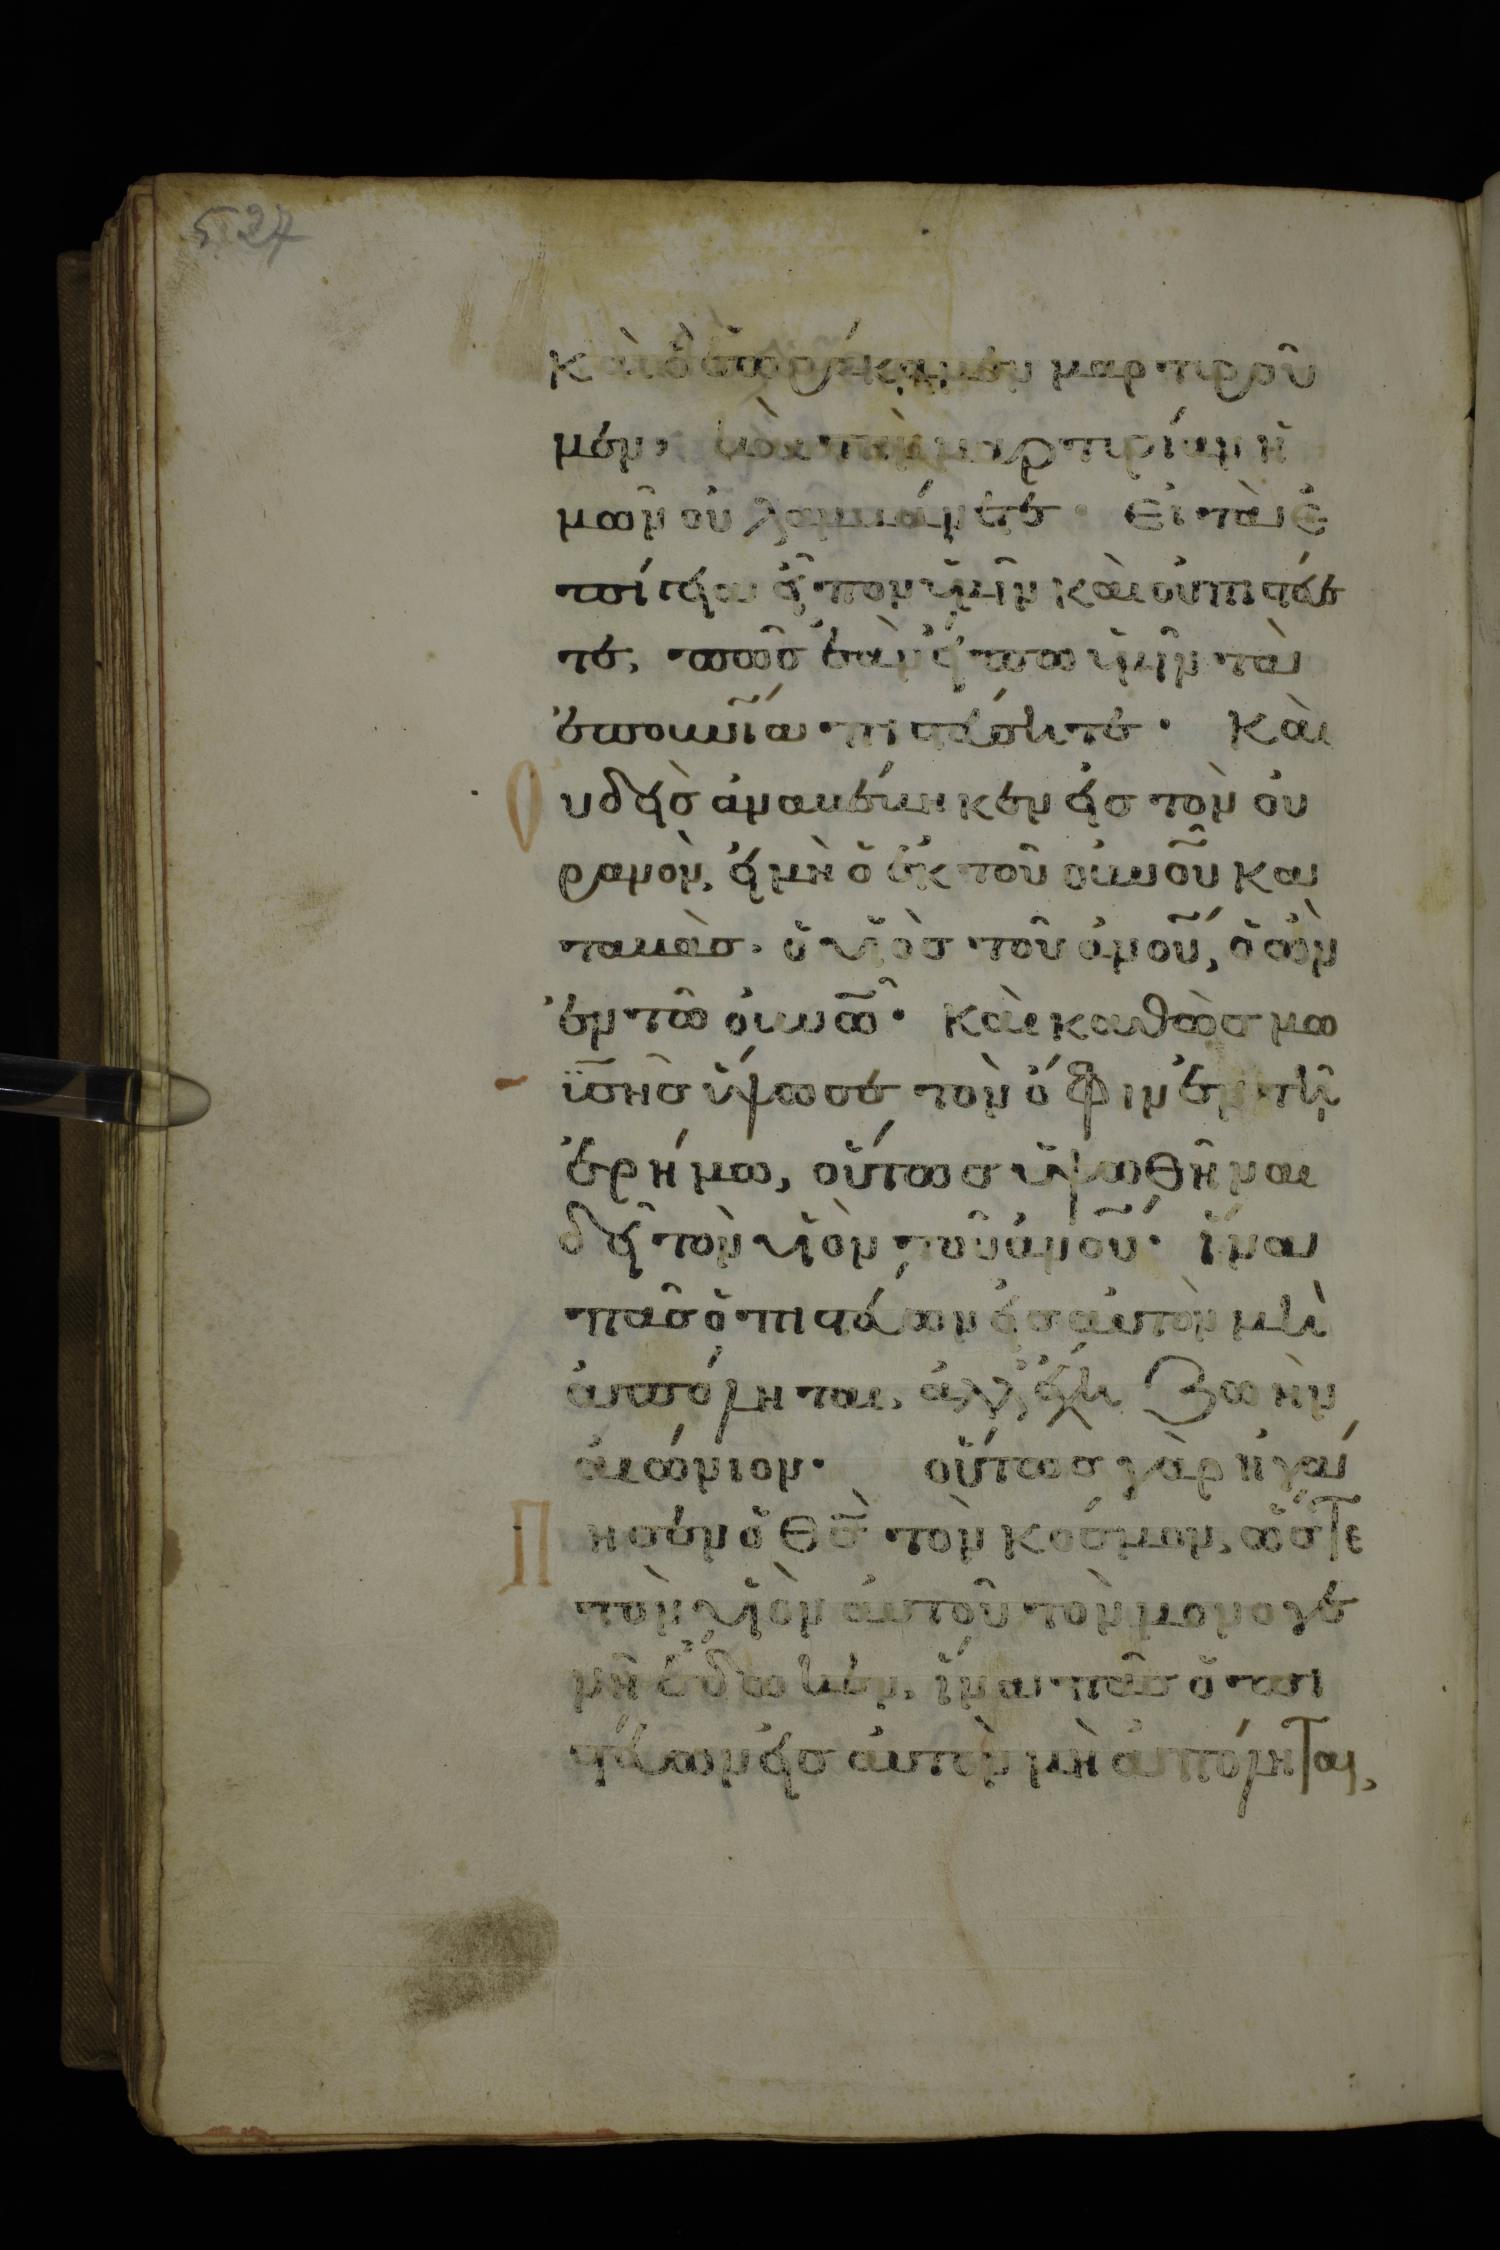 5 27
καὶ ὃ ἑωράκαμεν μαρτυροῦ
μεν, καὶ τὴν μαρτυρίαν ἡ
μῶν οὐ λαμβάνετε. Εἰ τὰ ἐ
πίγεια εἶπον ὑμῖν καὶ οὐ πιστεύε
τε, πῶς ἐὰν εἴπω ὑμῖν τὰ
ἐπουνῖα πιστεύσητε. Καὶ
Ουδεὶς ἀναβέβηκεν εἰς τὸν οὐ
ρανὸν, εἰ μὴ ὁ ἐκ τοῦ οὐνοῦ κα
ταβὰς. ὁ υἱὸς τοῦ ἀνοῦ, ὁ ὢν
ἐν τῶ οὐνῶ. Καὶ καθὼς μω
ϊσῆς ὕψωσε τὸν ὄφιν ἐν τῆ
ἐρήμω, οὕτως ὑψωθῆναι
δεῖ τὸν υἱὸν τοῦ ἀνοῦ. ἵνα
πᾶς ὁ πιστεύων εἰς αὐτὸν μὴ
ἀπόληται, ἀλλ' ἔχη ζωὴν
αἰώνιον. οὕτως γὰρ ἠγά
Πησεν ὁ θς τὸν κόσμον, ὥστε
τὸν υἱὸν αὐτοῦ τὸν μονογε
νῆ ἔδωκεν, ἵνα πᾶς ὁ πι
στεύων εἰς αὐτὸν μὴ ἀπόληται,